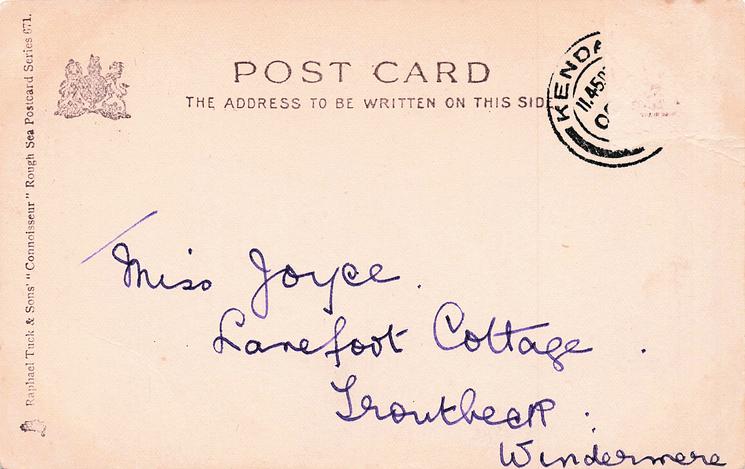 POST CARD
THE ADDRESS TO BE WRITTEN ON THIS SIDE
KENDA
11.45P
OC
Raphael Tuck & Sons' "Connoisseur" Rough Sea Postcard Series 671.
Miss Joyce.
Lanefoot Cottage.
Troutbeck.
Windermere